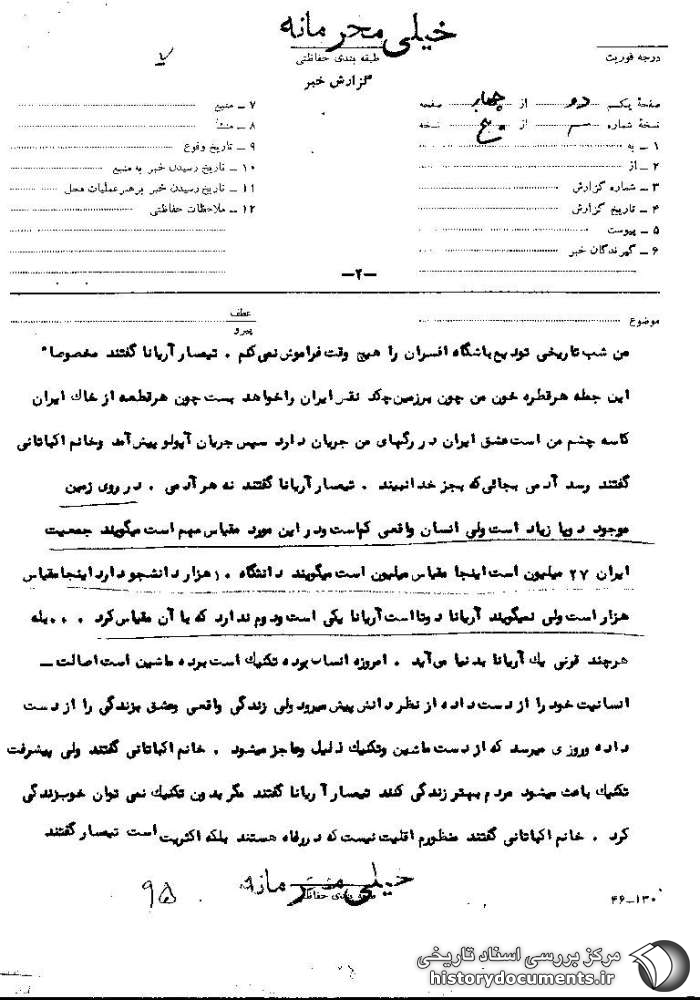 خیلی محرمانه
طبقه بندی حفاظتی
درجه فوریت
گزارش خبر
صفحهٔ یکم دو از چهار صفحه
نسخهٔ شماره از نسخه
۱ ـ به
۲ ـ از
۳ ـ شماره گزارش
۴ ـ تاریخ گزارش
۵ ـ پیوست
۶ ـ گیرندگان خبر
۷ ـ منبع
۸ ـ منشأ
۹ ـ تاریخ وقوع
۱۰ ـ تاریخ رسیدن خبر به منبع
۱۱ ـ تاریخ رسیدن خبر برهبر عملیات محل
۱۲ ـ ملاحظات حفاظتی
ـ۲ـ
موضوع
عطف
پیرو
من شب تاریخی تودیع باشگاه افسران را هیچ وقت فراموش نمی کنم . تیمسار آریانا گفتند مخصوصا"
این جمله هر قطره خون من چون بر زمین چکد نقش ایران را خواهد بست چون هر قطعه از خاك ایران
کاسه چشم من است عشق ایران در رگهای من جریان دارد سپس جریان آپولو پیش آمد و خانم اکباتانی
گفتند رسد آدمی بجائی که بجز خدا نبیند . تیمسار آریانا گفتند نه هر آدمی . در روی زمین
موجود دوپا زیاد است ولی انسان واقعی کم است و در این مورد مقیاس مهم است میگویند جمعیت
ایران ۲۷ میلیون است اینجا مقیاس میلیون است میگویند دانشگاه ۱۰ هزار دانشجو دارد اینجا مقیاس
هزار است ولی نمیگویند آریانا دوتا است آریانا یکی است و دوم ندارد که با آن مقیاس کرد . . . بله
هر چند قرنی یك آریانا بدنیا می آید . امروزه انسان برده تکنیك است برده ماشین است اصالت ـ
انسانیت خود را از دست داده از نظر دانش پیش میرود ولی زندگی واقعی و عشق بزندگی را از دست
داده و روزی میرسد که از دست ماشین و تکنیك ذلیل و عاجز میشود . خانم اکباتانی گفتند ولی پیشرفت
تکنیك باعث میشود مردم بهتر زندگی کنند تیمسار آریانا گفتند مگر بدون تکنیك نمی توان خوب زندگی
کرد . خانم اکباتانی گفتند منظورم اقلیت نیست که در رفاه هستند بلکه اکثریت است تیمسار گفتند
خیلی محرمانه
طبقه بندی حفاظتی
۹۵
۴۶ـ۱۳۰
مرکز بررسی اسناد تاریخی
historydocuments.ir